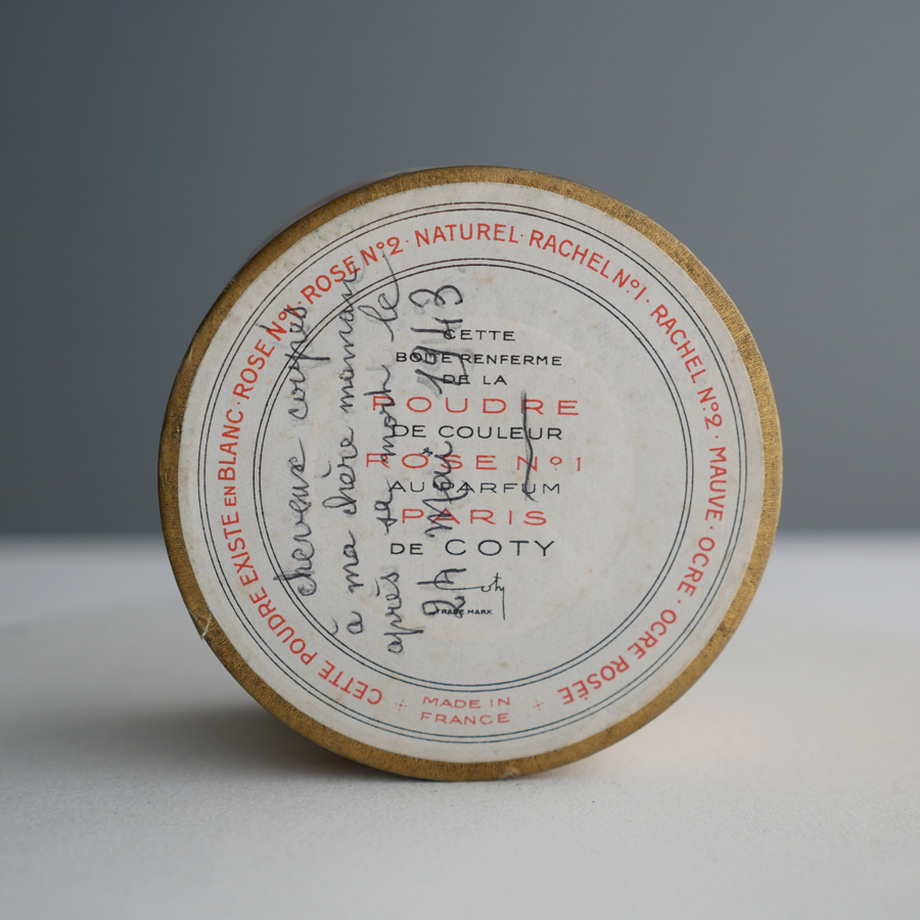 CETTE POUDRE EXISTE EN BLANC · ROSE Nº1 · ROSE Nº2 · NATUREL · RACHEL Nº1 · RACHEL Nº2 · MAUVE · OCRE · OCRE ROSÉE
MADE IN
FRANCE
CETTE
BOITE RENFERME
DE LA
POUDRE
DE COULEUR
ROSE Nº1
AU PARFUM
PARIS
DE COTY
Coty
TRADE MARK
cheveux coupés
à ma chère maman
après sa mort le
24 Mai 1943